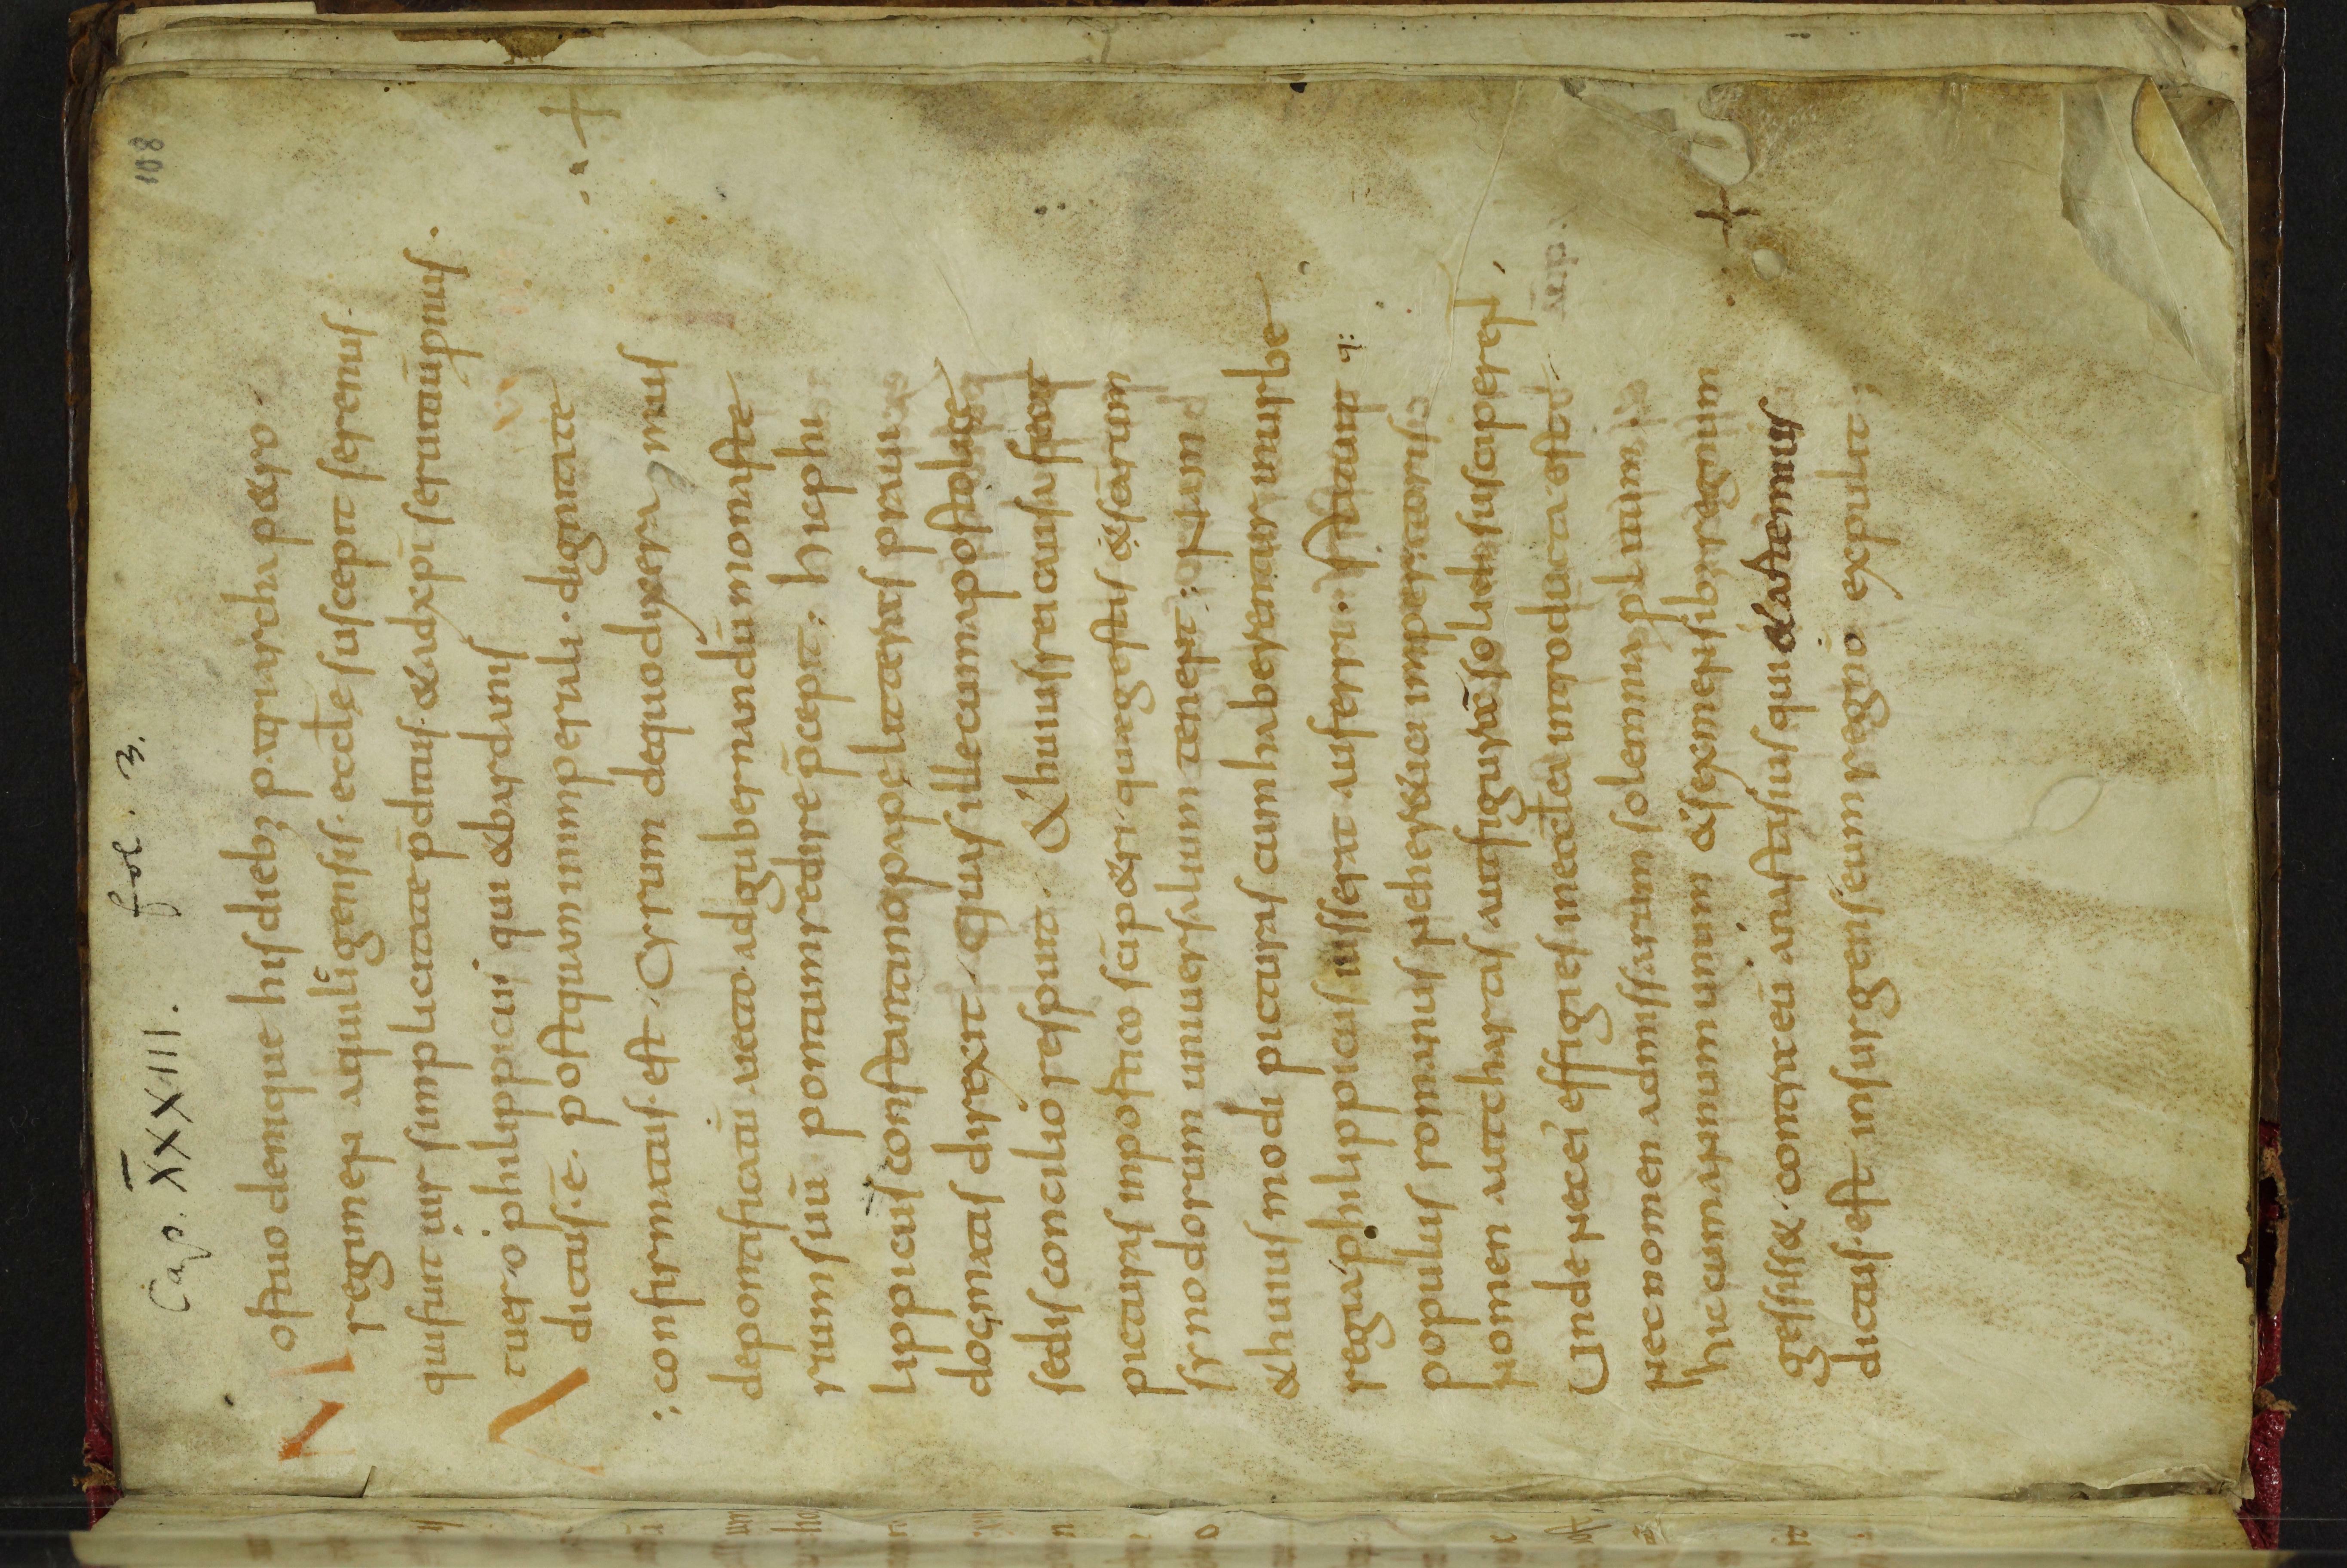 108
Cap. XXXIII. fol. 3.
ostuo denique his dieb; patriarcha petro.
regimen aquiligensis. eccłe suscepit serenus.
qui fuit uir simplicitate p̄ditus. & ad xp̄i seruitiū p̄nus.
t uero philippicus qui & bardanis
dictus. ē. postquam in imperiali. dignitate
confirmatus. est. Cyrum de quo dixeramus
de pontificatū iecto. ad gubernandū monaste
rium suū pontum redire p̄cepit; hic phi
lippicus constantino papę litteras praui
dogmatis direxit. Quas ille cum apostolice
sedis concilio respuit. & huius rei causa fecit
picturas in portico sc̄i petri. quę gesta sex sc̄arum
synodorum uniuersalium tenent;
& huius modi picturas cum haberentur in urbe
regia philippicus iusserat auferri. statuit q:
populus romanus ne heretici imperatoris
nomen aut chartas aut figurā solidi susciperet
Unde nec ei effigies in eccłea introducta est
nec nomen ad missarum solemnia platum
hic cum annum unum & sex mensib; regnum
gessiss&. contra eū anastasius qui & artemius
dictus. est insurgens eum regno expulit;